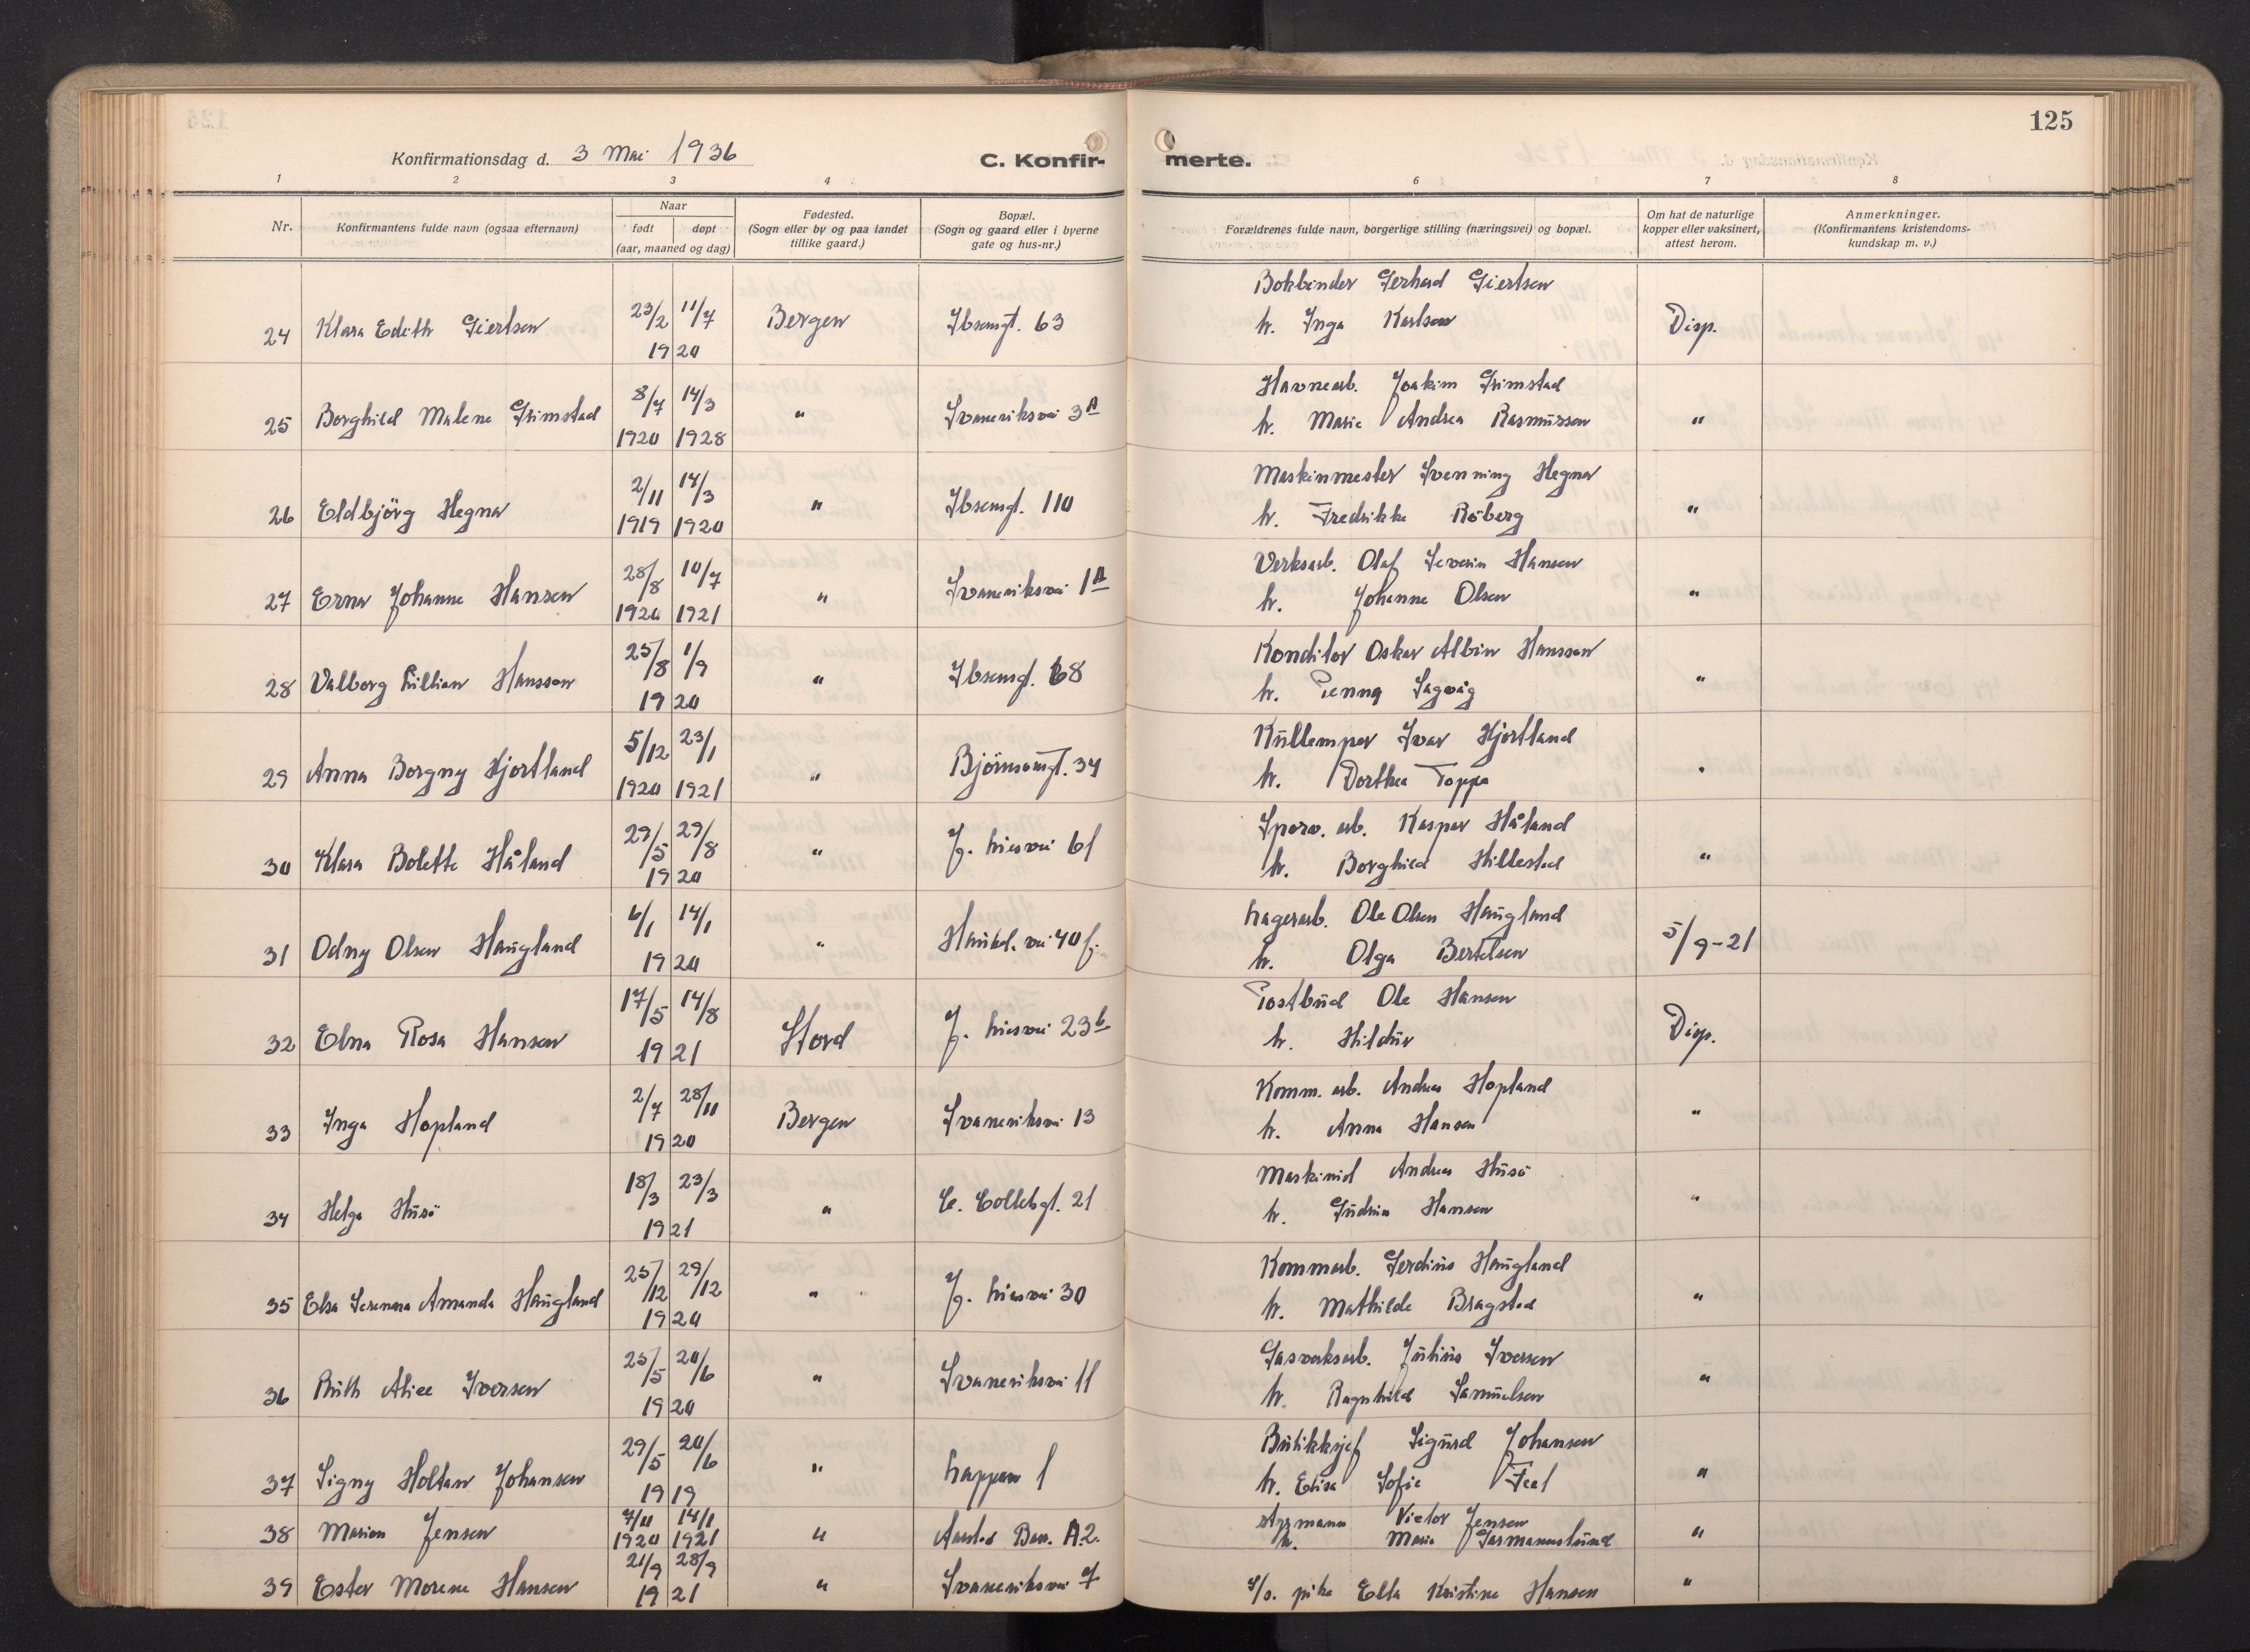 125
Konfirmationsdag d. 3 Mai 1936
C. Konfir- merte.
1 2 3 4 6 7 8
Nr.
Konfirmantens fulde navn (ogsaa efternavn)
Naar
født døpt
(aar, maaned og dag)
Fødested.
(Sogn eller by og paa landet
tillike gaard.)
Bopæl.
(Sogn og gaard eller i byerne
gate og hus-nr.)
Forældrenes fulde navn, borgerlige stilling (næringsvei) og bopæl.
Om hat de naturlige
kopper eller vaksinert,
attest herom.
Anmerkninger.
(Konfirmantens kristendoms-
kundskap m. v.)
Bokbinder Gerhard Giertsen
24 Klara Edith Giertsen 23/2 11/7 Bergen Ibsensgt. 63 h. Inga Karlsen Disp.
1920
Havnearb. Joakim Grimstad
25 Borghild Malene Grimstad 8/7 14/3 " Svaneviksvei 3A h. Marie Andrea Rasmussen "
1920 1928
Maskinmester Svenning Hegner
26 Eldbjörg Hegner 2/11 14/3 " Ibsensgt. 110 h. Fredrikke Röberg "
1919 1920
Verksarb. Olaf Severin Hansen
27 Erna Johanne Hansen 28/8 10/7 " Svaneviksvei 1A h. Johanne Olsen "
1920 1921
Konditor Oskar Albin Hansson
28 Valborg Lillian Hansson 25/8 1/9 " Ibsensgt. 68 h. Jenny Sagvåg "
1920
Kullemper Ivar Hjortland
29 Anna Borgny Hjortland 5/12 23/1 " Björnsonsgt. 34 h. Dorthea Toppe "
1920 1921
Sporv. arb. Kasper Håland
30 Klara Bolette Håland 29/5 29/8 " J. Liesvei 61 h. Borghild Hillestad "
1920
Lagerarb. Ole Olsen Haugland
31 Odny Olsen Haugland 6/1 14/1 " Haukel. vei 40 f. h. Olga Bertelsen 5/9-21
1920
Postbud Ole Hansen
32 Elna Rosa Hansen 17/5 14/8 Stord J. Liesvei 23b h. Hildur Disp.
1921
Komm. arb. Andreas Hopland
33 Inga Hopland 2/7 28/11 Bergen Svaneviksvei 13 h. Anna Hansen "
1920
Maskinist Andreas Husö
34 Helga Husö 18/3 23/3 " C. Colletsgt. 21 h. Gudrun Hansen "
1921
Kommarb. Gerdius Haugland
35 Elsa Amanda Haugland 25/12 29/12 " J. Liesvei 30 h. Mathilde Bragstad "
1920
Gasverksarb. Julius Iversen
36 Ruth Alice Iversen 25/5 20/6 " Svaneviksvei 11 h. Ragnhild Samuelsen "
1920
Butikksjef Sigurd Johansen
37 Signy Holtan Johansen 29/5 20/6 " Lappen 1 h. Elisa Sofie "
1919
Victor Jensen
38 Marion Jensen 7/11 14/1 " Aarstad Bar. A.2. h. Marie "
1920 1921
39 Ester Morene Hansen 21/9 28/9 " Svaneviksvei 9 pike Ella Kristine Hansen "
1921